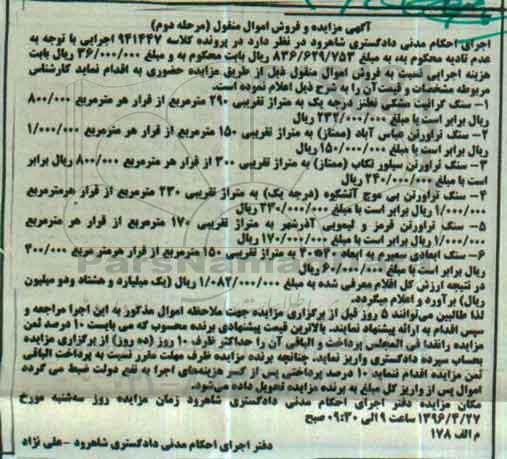 آگهی مزایده و فروش اموال منقول (مرحله دوم)
اجرای احکام مدنی دادگستری شاهرود در نظر دارد در پرونده کلاسه ۹۴۱۴۴۷ اجرایی با توجه به
عدم تادیه محکوم به، به مبلغ ۸۳۶/۶۲۹/۷۵۳ ریال بابت محکوم به و مبلغ ۳۶/۰۰۰/۰۰۰ ریال بابت
هزینه اجرایی نسبت به فروش اموال منقول ذیل از طریق مزایده حضوری به اقدام نماید کارشناس
مربوطه مشخصات و قیمت آن را به شرح ذیل اعلام نموده است.
۱- سنگ گرانیت مشکی نطنز درجه یک به متراژ تقریبی ۲۹۰ مترمربع از قرار هر مترمربع ۸۰۰/۰۰۰
ریال برابر است با مبلغ ۲۳۲/۰۰۰/۰۰۰ ریال
۲- سنگ تراورتن عباس آباد (ممتاز) به متراژ تقریبی ۱۵۰ مترمربع از قرار هر مترمربع ۱/۰۰۰/۰۰۰
ریال برابر است با مبلغ ۱۵۰/۰۰۰/۰۰۰ ریال
۳- سنگ تراورتن سیلور تکاب (ممتاز) به متراژ تقریبی ۳۰۰ از قرار هر مترمربع ۸۰۰/۰۰۰ ریال برابر
است با مبلغ ۲۴۰/۰۰۰/۰۰۰ ریال
۴- سنگ تراورتن بی موج آتشکوه (درجه یک) به متراژ تقریبی ۲۳۰ مترمربع از قرار هرمترمربع
۱/۰۰۰/۰۰۰ ریال برابر است با مبلغ ۲۳۰/۰۰۰/۰۰۰ ریال
۵- سنگ تراورتن قرمز و لیمویی آذرشهر به متراژ تقریبی ۱۷۰ مترمربع از قرار هر مترمربع
۱/۰۰۰/۰۰۰ ریال برابر است با مبلغ ۱۷۰/۰۰۰/۰۰۰ ریال
۶- سنگ ابعادی سمیرم به ابعاد ۴۰*۴۰ به متراژ تقریبی ۱۵۰ مترمربع از قرار هرمترمربع ۴۰۰/۰۰۰
ریال برابر است با مبلغ ۶۰/۰۰۰/۰۰۰ ریال
در نتیجه ارزش کل اقلام معرفی شده به مبلغ ۱/۰۸۲/۰۰۰/۰۰۰ ریال (یک میلیارد و هشتاد ودو میلیون
ریال) برآورد و اعلام میگردد.
لذا طالبین می‌توانند ۵ روز قبل از برگزاری مزایده جهت ملاحظه اموال مذکور به این اجرا مراجعه و
سپس اقدام به ارائه پیشنهاد نمایند. بالاترین قیمت پیشنهادی برنده محسوب که می بایست ۱۰ درصد ثمن
مزایده رانقدا فی المجلس پرداخت و الباقی آن را حداکثر ظرف ۱۰ روز (ده روز) از برگزاری مزایده
بحساب سپرده دادگستری واریز نماید. چنانچه برنده مزایده ظرف مهلت مقرر نسبت به پرداخت الباقی
ثمن مزایده اقدام ننماید ۱۰ درصد پرداختی پس از کسر هزینه‌های اجرا به نفع دولت ضبط می گردد
اموال پس از واریز کل مبلغ به برنده مزایده تحویل داده می‌شود.
مکان مزایده دفتر اجرای احکام مدنی دادگستری شاهرود زمان مزایده روز سه‌شنبه مورخ
۱۳۹۶/۴/۲۷ ساعت ۹ الی ۰۹:۳۰ صبح
م الف ۱۷۸
دفتر اجرای احکام مدنی دادگستری شاهرود -علی نژاد